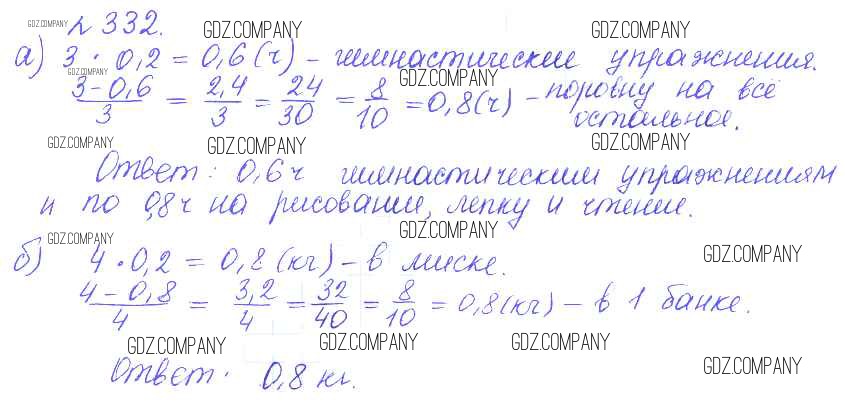 GDZ.COMPANY № 332. GDZ.COMPANY GDZ.COMPANY
а) 3 · 0,2 = 0,6 (ч) – гимнастические упражнения.
GDZ.COMPANY GDZ.COMPANY
3-0,6/3 = 2,4/3 = 24/30 = 8/10 = 0,8 (ч) – поровну на всё
остальное.
GDZ.COMPANY GDZ.COMPANY GDZ.COMPANY
Ответ: 0,6 ч гимнастическим упражнениям
и по 0,8 ч на рисование, лепку и чтение.
GDZ.COMPANY GDZ.COMPANY GDZ.COMPANY
б) 4 · 0,2 = 0,8 (кг) – в миске.
4-0,8/4 = 3,2/4 = 32/40 = 8/10 = 0,8 (кг) – в 1 банке.
GDZ.COMPANY GDZ.COMPANY GDZ.COMPANY GDZ.COMPANY
Ответ. 0,8 кг.